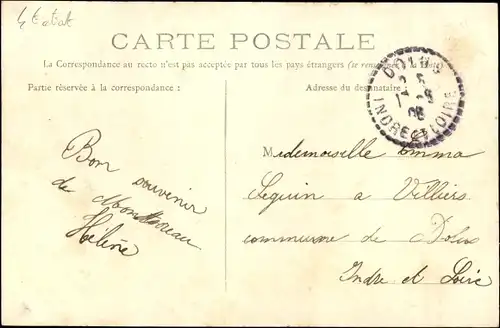 CARTE POSTALE
La Correspondance au recto n'est pas acceptée par tous les pays étrangers (se renseigner à la Poste)
Partie réservée à la correspondance :
Adresse du destinataire :
DOLUS
INDRE ET LOIRE
Bon souvenir
de
Hélène
Mademoiselle Emma
Seguin à Villiers
commune de Dolus
Indre et Loire